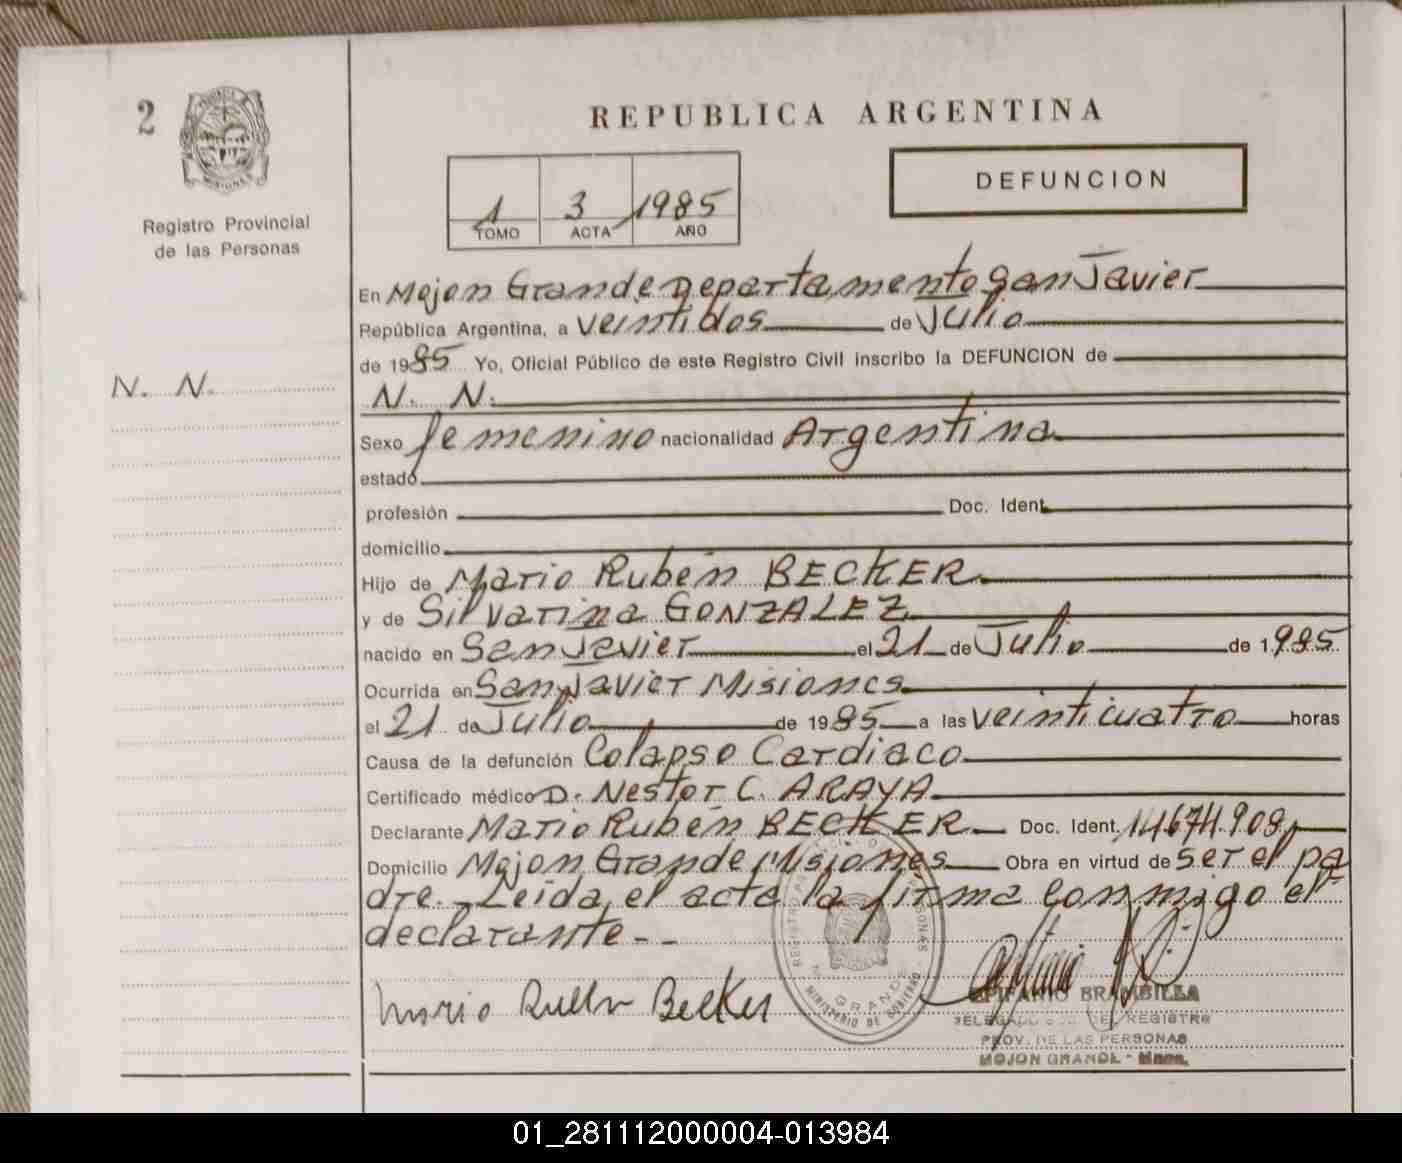 2
REPUBLICA ARGENTINA
DEFUNCION
1 3 1985
TOMO ACTA AÑO
Registro Provincial
de las Personas
MISIONES
N. N.
En Mojon Grande Departamento San Javier
República Argentina, a veintidos de Julio
de 1985 Yo, Oficial Público de este Registro Civil inscribo la DEFUNCION de
N. N.
Sexo femenino nacionalidad Argentina
estado
profesión Doc. Ident.
domicilio
Hijo de Mario Rubén BECKER
y de Silvarina GONZALEZ
nacido en San Javier el 21 de Julio de 1.985
Ocurrida en San Javier Misiones
el 21 de Julio de 1985 a las veinticuatro horas
Causa de la defunción Colapso Cardiaco
Certificado médico D. Nestor C. ARAYA
Declarante Mario Rubén BECKER Doc. Ident. 14.674.908
Domicilio Mojon Grande Misiones Obra en virtud de ser el pa
dre.- Leida el acta la firma conmigo el
declarante--
Mario Ruben Becker
MINISTERIO DE GOBIERNO
GRANDE
EPIFANIO BRAMBILLA
DELEGADO DEL REGISTRO
PROV. DE LAS PERSONAS
MOJON GRANDE - Mnes.
01_281112000004-013984